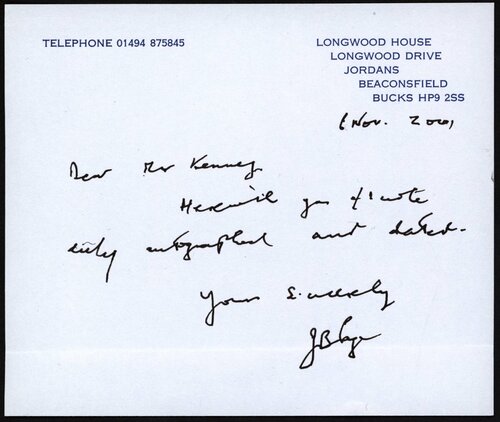 TELEPHONE 01494 875845
LONGWOOD HOUSE
LONGWOOD DRIVE
JORDANS
BEACONSFIELD
BUCKS HP9 2SS
6 Nov. 2001
Dear Mr Kenney,
Herewith your £1 note
duly autographed and dated.
Yours sincerely
JB Page